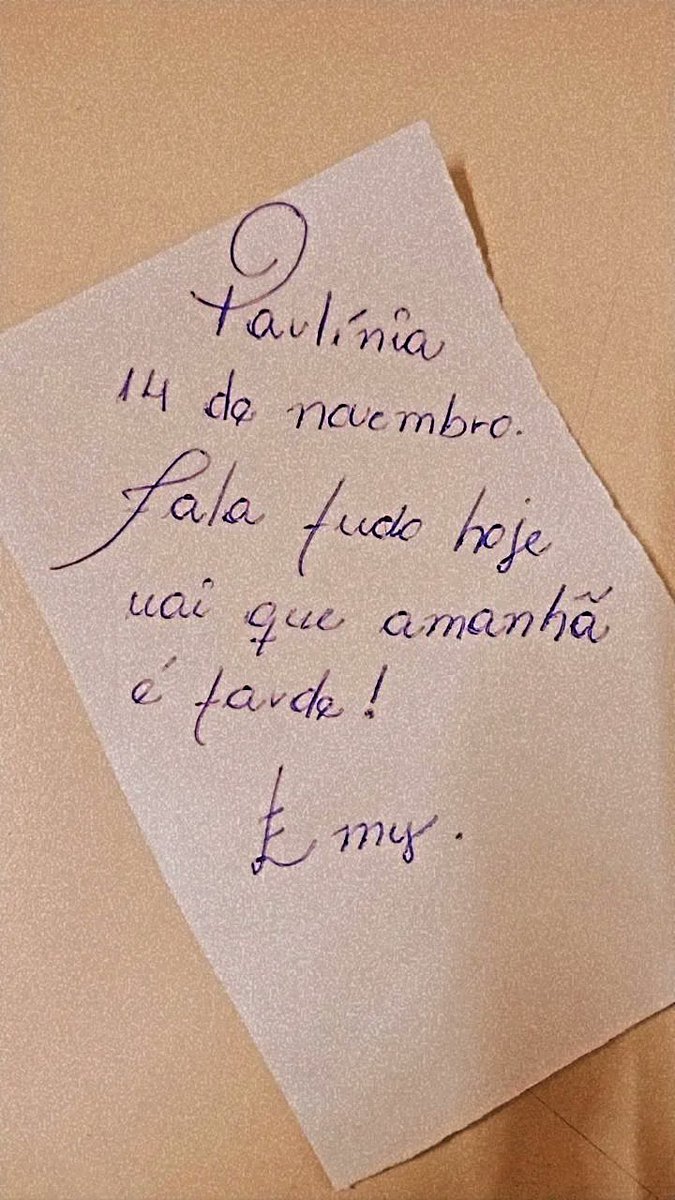 Paulínia
14 de novembro.
Fala tudo hoje
vai que amanhã
é tarde!
Emy.